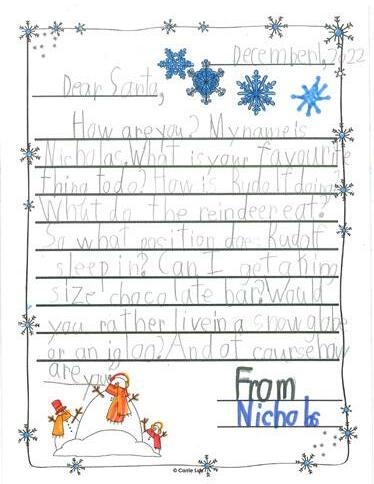 December 1, 2022
Dear Santa,
How are you? My name is
Nicholas. What is your favourite
thing to do? How is Rudolf doing?
What do the reindeer eat?
So what position does Rudolf
sleep in? Can I get a king
size chocolate bar? Would
you rather live in a snow globe
or an igloo? And of course how
are you?
From
Nicholas
© Carrie